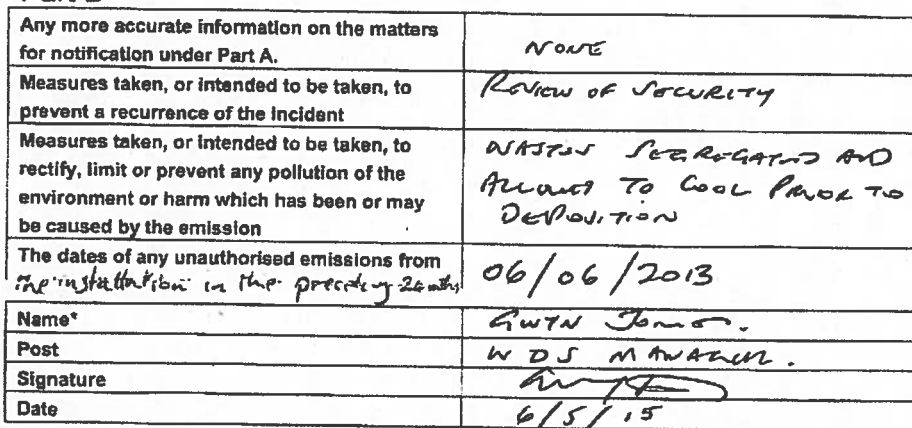 Any more accurate information on the matters
for notification under Part A.
NONE
Measures taken, or intended to be taken, to
prevent a recurrence of the incident
REVIEW OF SECURITY
Measures taken, or intended to be taken, to
rectify, limit or prevent any pollution of the
environment or harm which has been or may
be caused by the emission
WASTES SEGREGATED AND
ALLOWED TO COOL PRIOR TO
DEPOSITION
The dates of any unauthorised emissions from
the installation in the preceding 24 mths
06/06/2013
Name*
GWYN JONES.
Post
WDS MANAGER.
Signature
Date
6/5/15